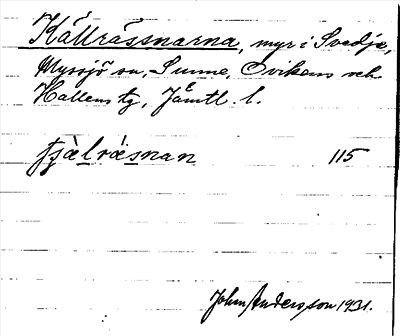 Källrässnarna, myr i Svedje,
Myssjö sn, Sunne, Ovikens och
Hallens tg, Jämtl. l.
tjälräsnan 115
John Andersson 1931.